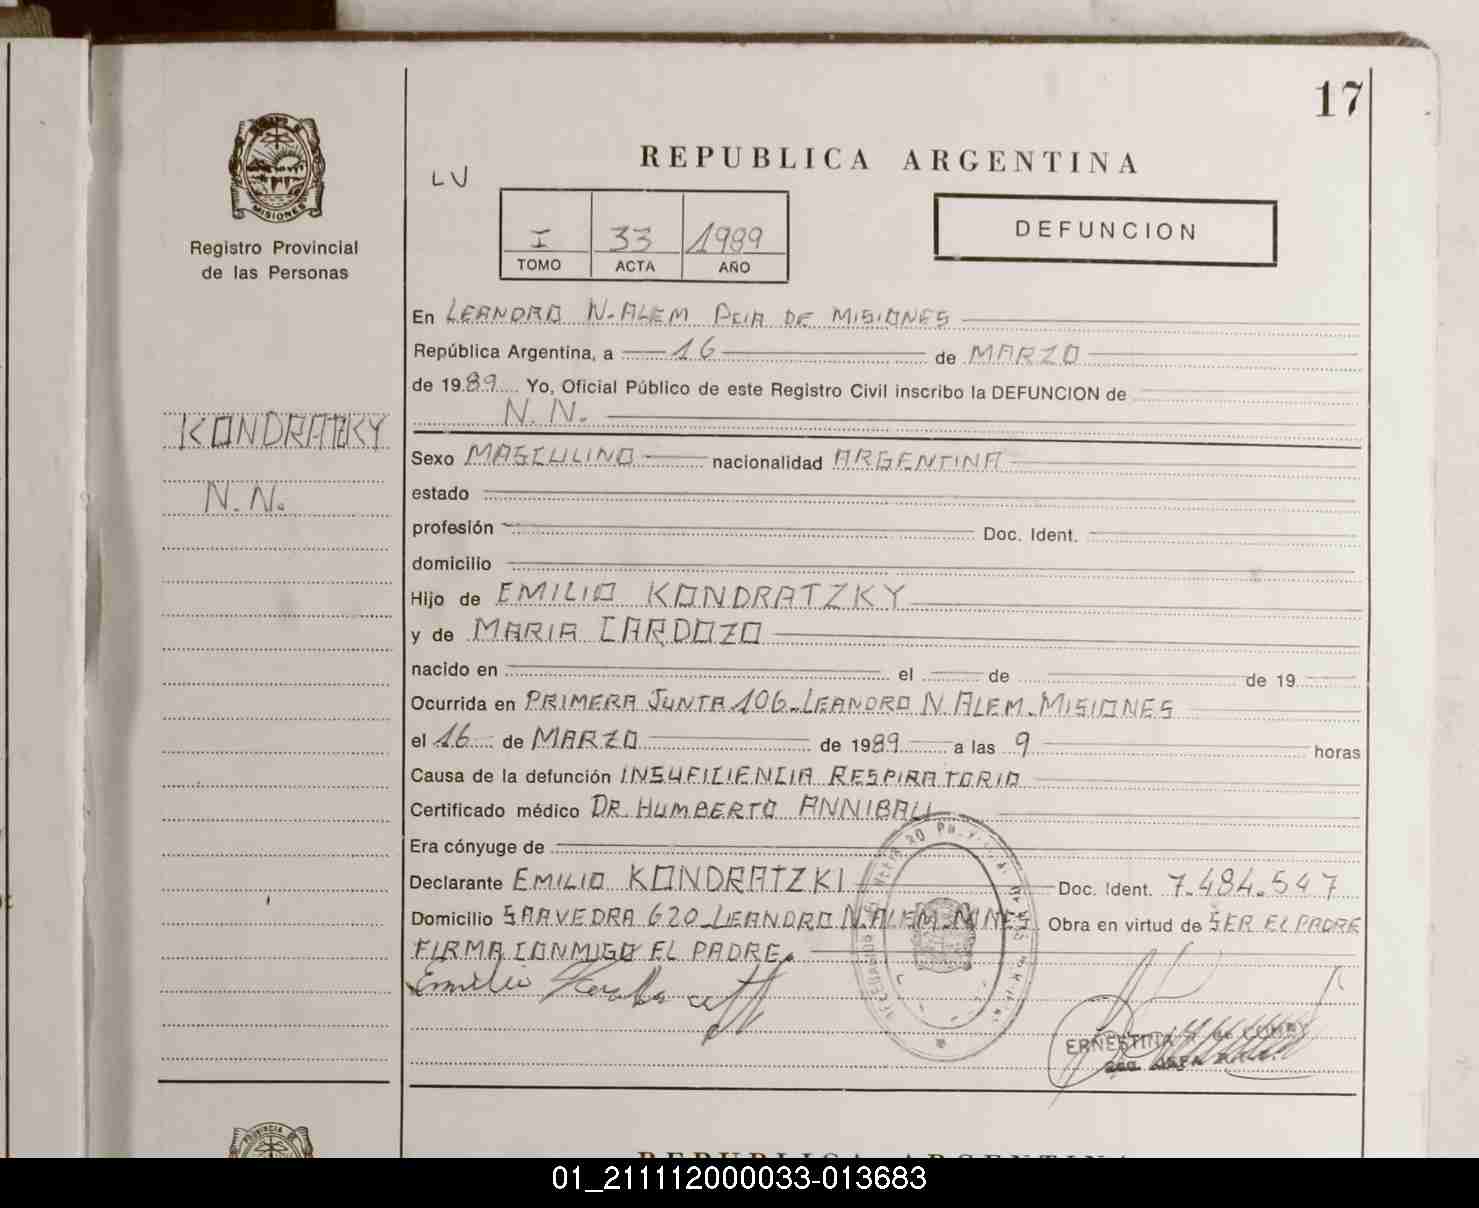 17
REPUBLICA ARGENTINA
LV
MISIONES
Registro Provincial
de las Personas
I 33 1989
TOMO ACTA AÑO
DEFUNCION
En LEANDRO N. ALEM PCIA DE MISIONES
República Argentina, a 16 de MARZO
de 1989 Yo, Oficial Público de este Registro Civil inscribo la DEFUNCION de
N. N.
KONDRATZKY
N. N.
Sexo MASCULINO nacionalidad ARGENTINA
estado
profesión Doc. Ident.
domicilio
Hijo de EMILIO KONDRATZKY
y de MARIA CARDOZO
nacido en el de de 19
Ocurrida en PRIMERA JUNTA 106_LEANDRO N. ALEM_MISIONES
el 16 de MARZO de 1989 a las 9 horas
Causa de la defunción INSUFICIENCIA RESPIRATORIA
Certificado médico DR. HUMBERTO ANNIBALI
Era cónyuge de
Declarante EMILIO KONDRATZKI Doc. Ident. 7.484.547
Domicilio SAAVEDRA 620_LEANDRO N. ALEM_MNES Obra en virtud de SER EL PADRE
FIRMA CONMIGO EL PADRE.
Emilio
ERNESTINA
PROVINCIA DE
REPUBLICA ARGENTINA
01_211112000033-013683